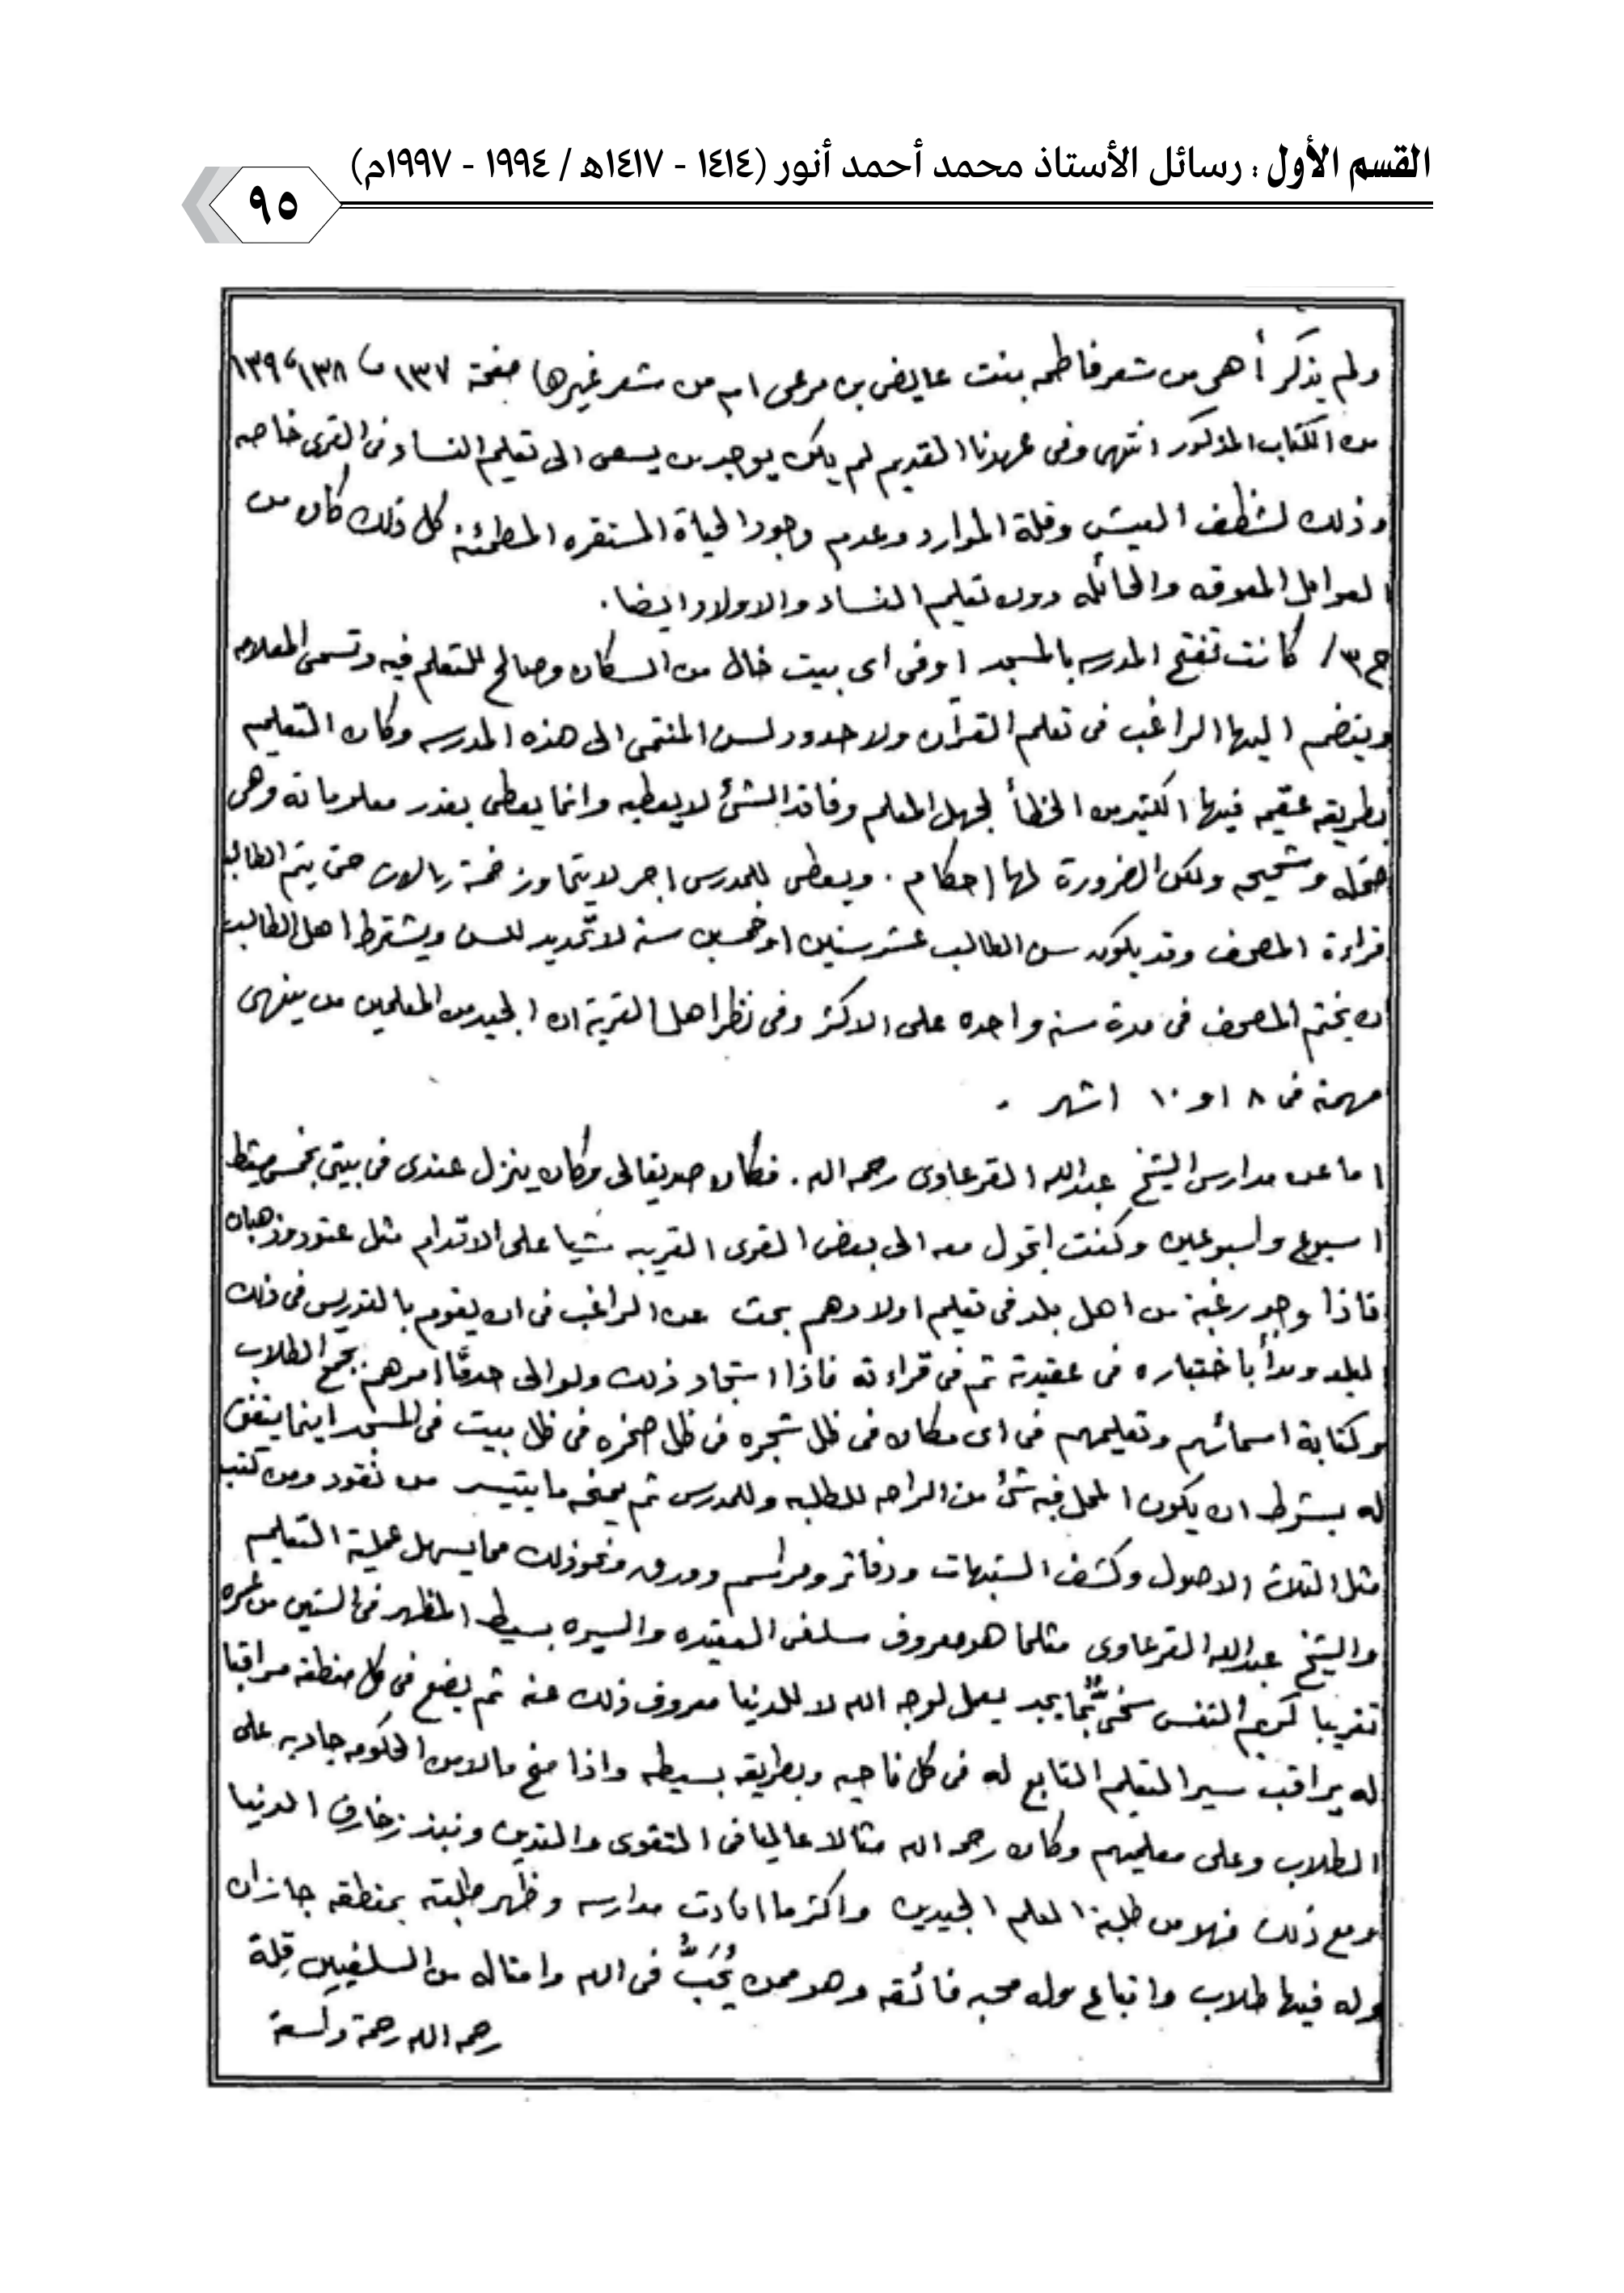 القسم الأول : رسائل الأستاذ محمد أحمد أنور (١٤١٤ - ١٤١٧ه / ١٩٩٤ - ١٩٩٧م)
٩٥
ولم يذكر أهى من شعر فاطمه بنت عايض بن مرعى ام من شعر غيرها صفحة ١٣٧ ، ١٣٨ ، ١٣٩
من الكتاب المذكور انتهى وفى عهدنا القديم لم يكن يوجد من يسعى الى تعليم النساء فى القرى خاصه
وذلك لشظف العيش وقلة الموارد وعدم وجود الحياة المستقره المطمئنه كل ذلك كان من
العوامل المعوقه والحائله دون تعليم النساء والاولاد ايضا .
ج٣/ كانت تفتح المدرسه بالمسجد اوفى اى بيت خال من السكان وصالح للتعلم فيه وتسمى المعلامه
وينضم اليها الراغب فى تعلم القرآن ولا حدود لسن المنتمى الى هذه المدرسه وكان التعليم
بطريقه عقيمه فيها الكثير من الخطأ لجهل المعلم وفاقد الشئ لايعطيه وانما يعطى بقدر معلوماته وهى
ضحله وشحيحه ولكن الضرورة لها احكام . ويعطى للمدرس اجر لايتجاوز خمسة ريالات حتى يتم الطالب
قراءة المصحف وقد يكون سن الطالب عشر سنين او خمسين سنه لاتحديد للسن ويشترط اهل الطالب
ان يختم المصحف فى مدة سنه واحده على الاكثر وفى نظر اهل القرية ان الجيد من المعلمين من ينهى
مهمته فى ٨ او ١٠ اشهر .
اما عن مدارس الشيخ عبدالله القرعاوى رحمه الله . فكان صديقا لى وكان ينزل عندى فى بيتى بخميس مشيط
اسبوع واسبوعين وكنت اتجول معه الى بعض القرى القريبه مشيا على الاقدام مثل عتود وذهبان
فاذا وجد رغبة من اهل بلد فى تعليم اولادهم بحث عن الراغب فى ان يقوم بالتدريس فى ذلك
البلد وبدأ باختباره فى عقيدته ثم فى قراءته فاذا استجاد ذلك ولو الى حد ما امرهم بجمع الطلاب
وكتابة اسمائهم وتعليمهم فى اى مكان فى ظل شجره فى ظل صخره فى ظل بيت فى المسجد اينما يتفق
له بشرط ان يكون المحل فيه شئ من الراحه للطلبه وللمدرس ثم يمنحه ما يتيسر من نقود ومن كتب
مثل الثلاثة الاصول وكشف الشبهات ودفاتر ومراسم وورق ونحو ذلك مما يسهل عملية التعليم
والشيخ عبدالله القرعاوى مثلما هو معروف سلفى العقيده والسيره بسيط المظهر فى الستين من عمره
تقريبا كريم النفس سخىٌّ بما يجد يعمل لوجه الله لا للدنيا معروف ذلك عنه ثم يضع فى كل منطقه مراقبا
له يراقب سير التعليم التابع له فى كل ناحيه وبطريقه بسيطه واذا منح مالا من الحكومه جاد به على
الطلاب وعلى معلميهم وكان رحمه الله مثالا عاليا فى التقوى والتدين ونبذ زخارف الدنيا
ومع ذلك فهو من طلبة العلم الجيدين واكثر ما افادت مدارسه وظهر طلبته بمنطقه جازان
وله فيها طلاب واتباع وله محبه فائقه وهو ممن يُحَبُّ فى الله وامثاله من السلفيين قلة
رحمه الله رحمة واسعة